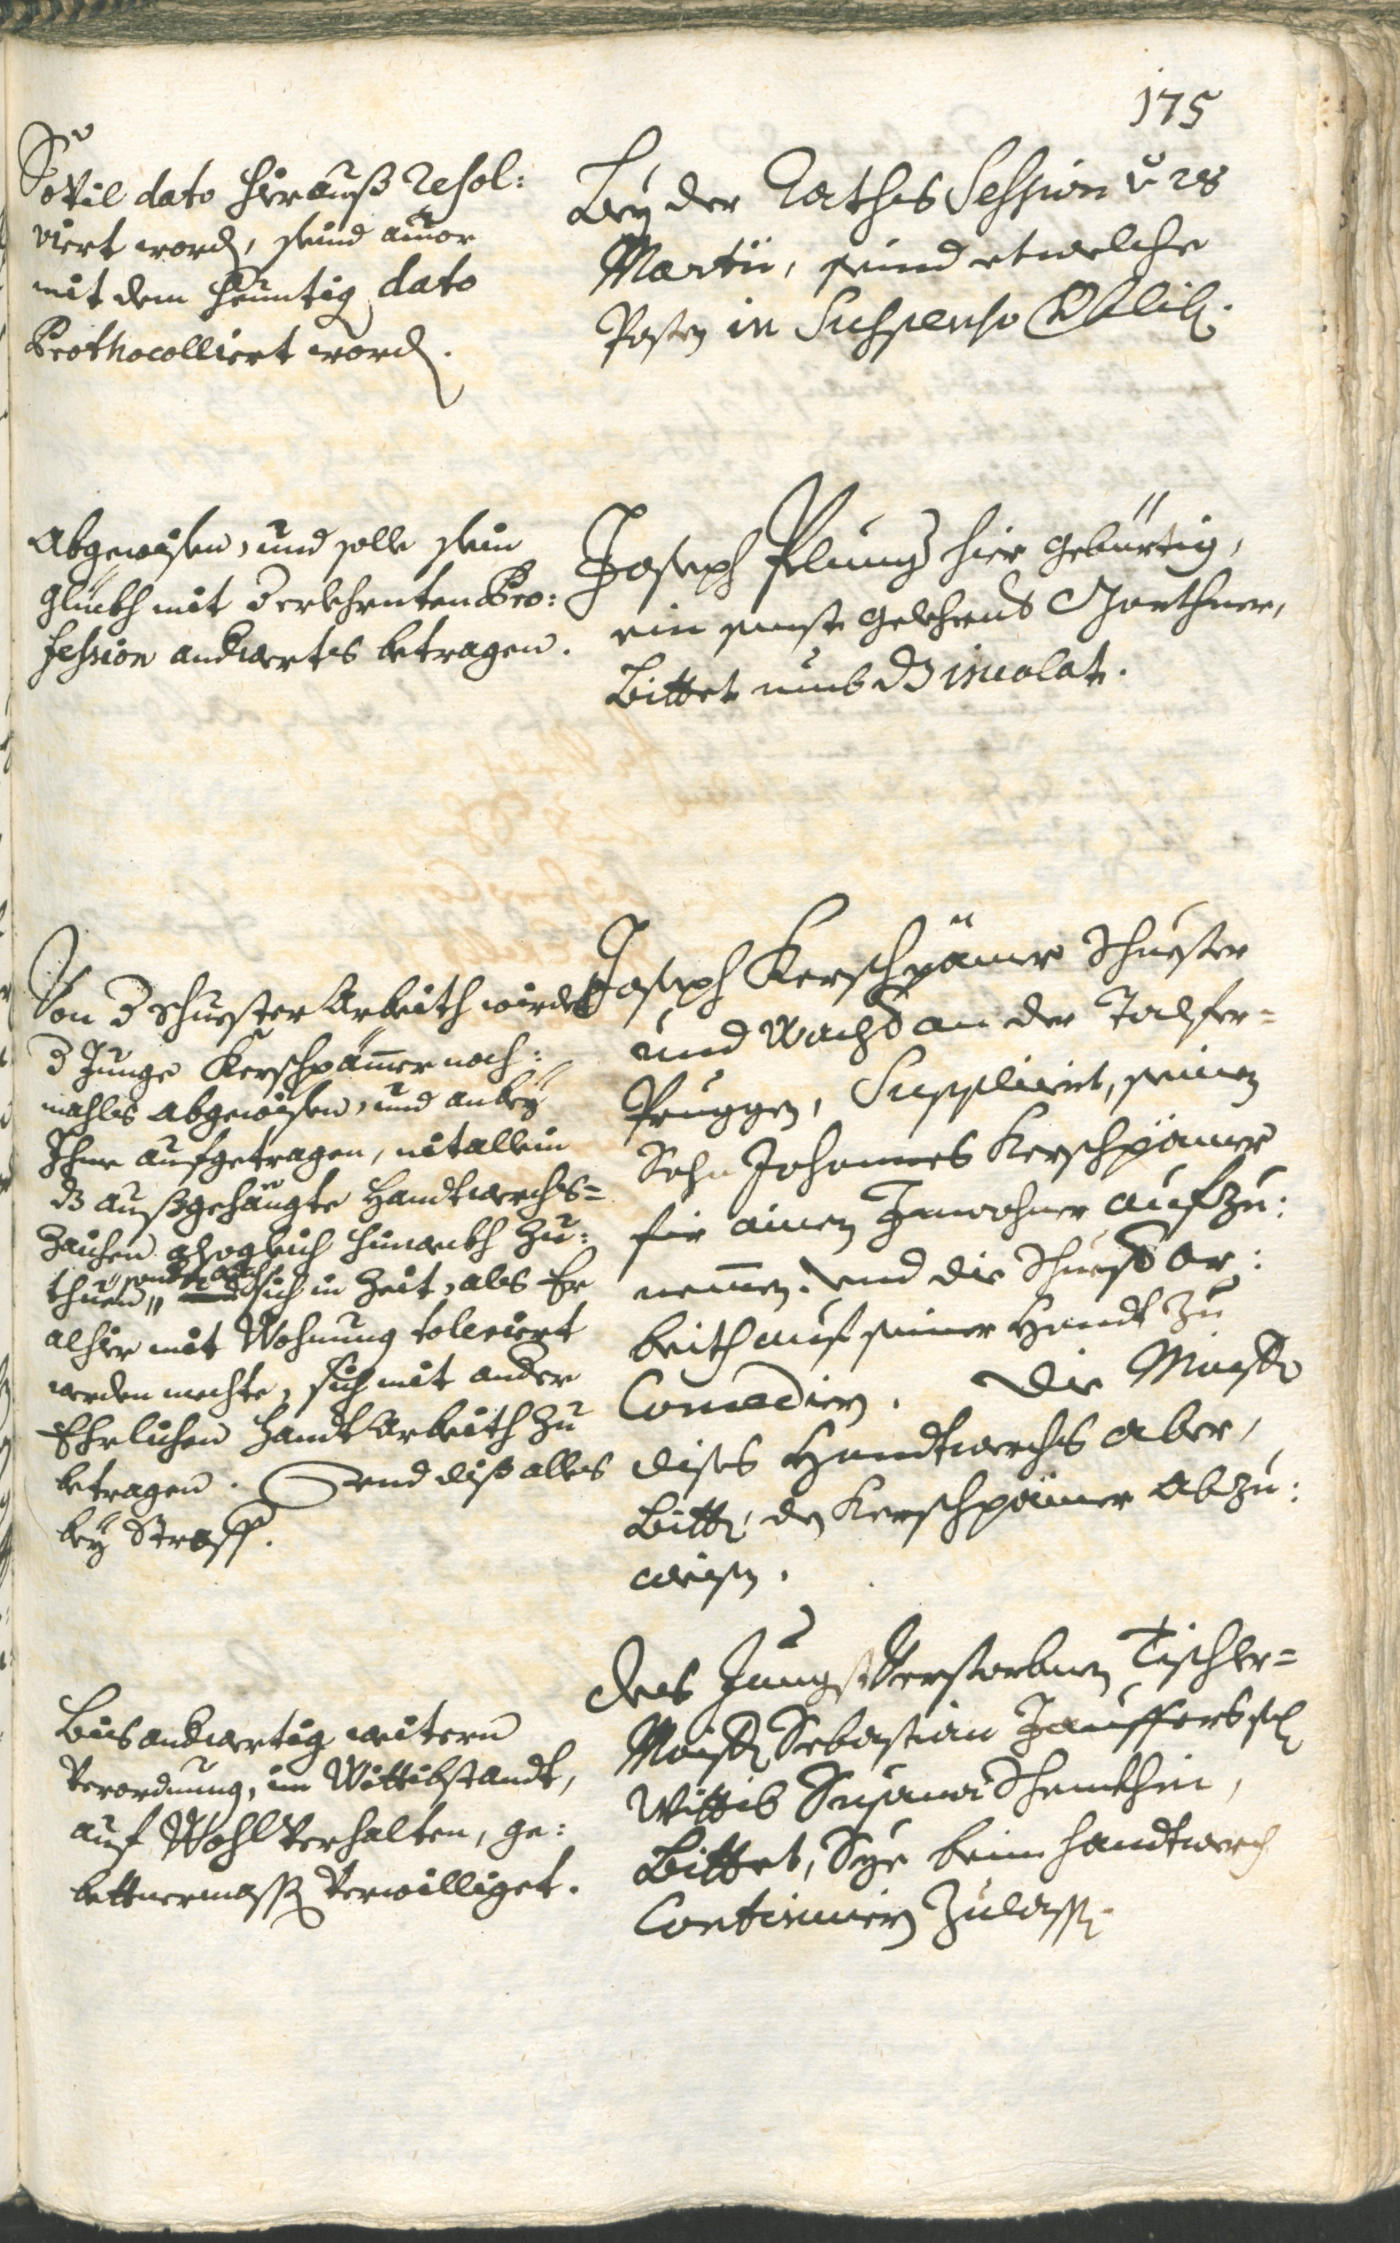 175
Sovil dato hierauß resol:
viert word, seind anvor
mit dem heuntig dato
Prothocolliert word.
Bey der Raths Session v 28
Martii, seind etwelche
Posten in Suspenso
Abgewisen, und solle sein
glückh mit d erlehrnten Pro:
fession anderwerts betragen.
Joseph hier gebürtig,
ein sonst gelehrnts
Bittet umb dz incolat.
Von d Schuester Arbeith wirdet
d Junge Kerschpämer noch:
mahls abgewisen, und anbey
Ihme aufgetragen, nit allein
dz außgehängte Handtwerchs=
Zaichen alsogleich hinwekh zu:
thuen, sondern auch sich in Zeit, als Er
alhier mit Wohnung toleriert
werden mechte, sich mit ander
Ehrlichen Handt Arbeith zu
betragen. Und diß alles
bey Straff.
Joseph Kerschpämer Schuester
und Wacht an der Talfer=
Pruggen, Suppliciert, seinen
Sohn Johannes Kerschpämer
für ainen Inwohner aufzu:
nemmen. Und die Schuest Ar:
beith auf seiner Handt zu
Die Maister
dises Handtwerchs aber,
Bitten, den Kerschpämer abzu:
weisen.
Bis anderwertig weitern
Verordnung, im Wittibstandt,
auf Wohl Verhalten, ge:
bettnermassen Verwilliget.
Des Jüngst Verstorbnen Tischler=
Maister Sebastian Jauffers sel
Wittib Susana
Bittet, Sye beim Handtwerch
Continuiern Zulassen.